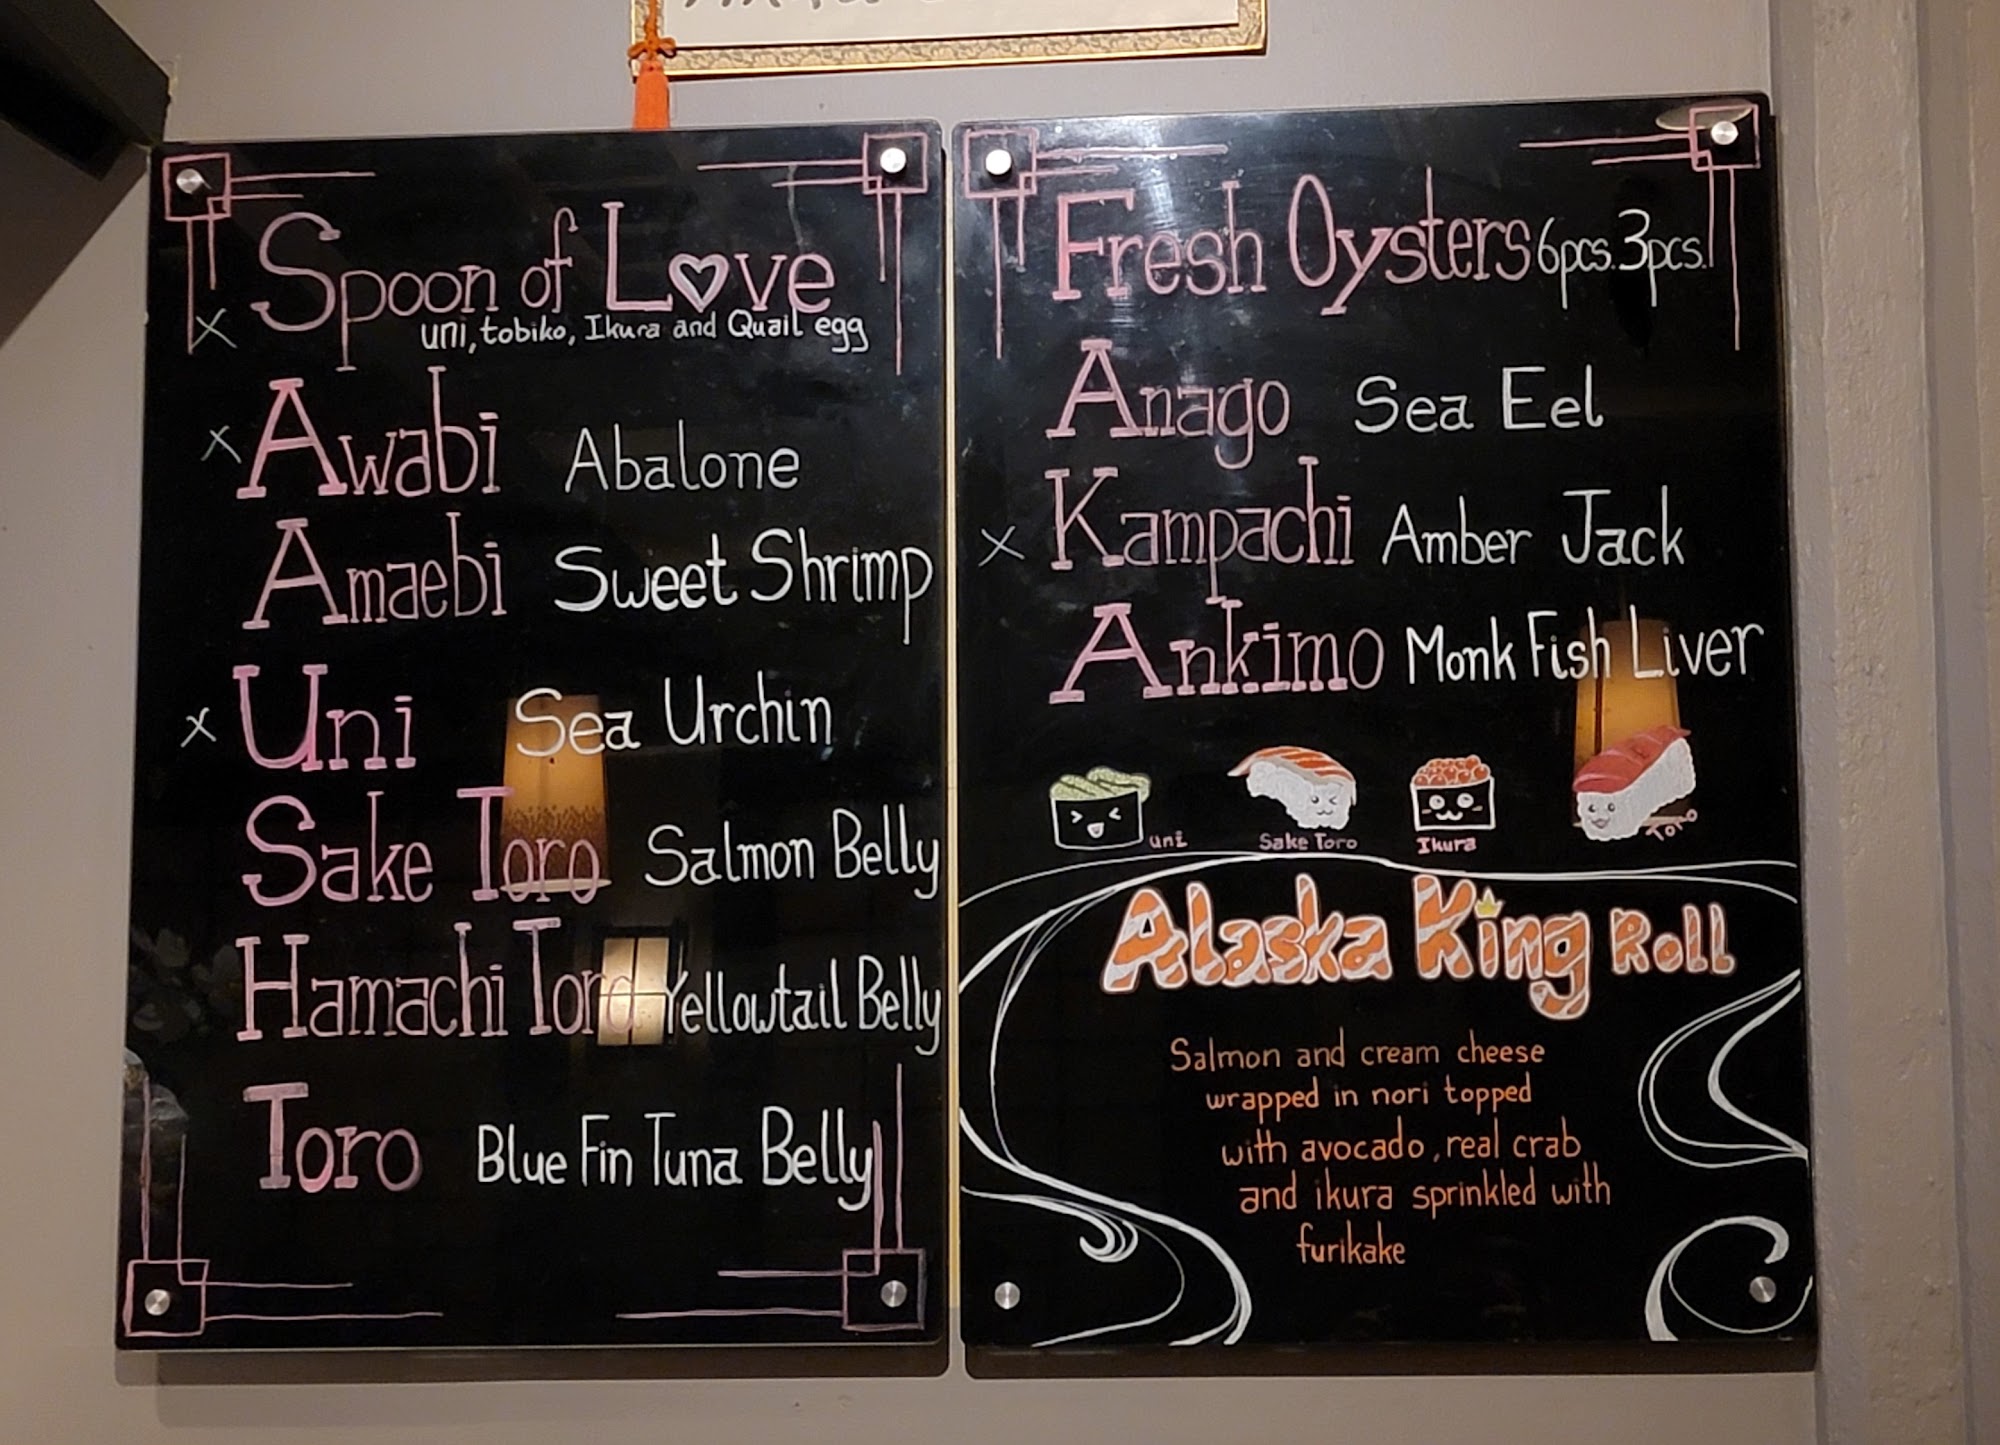 Spoon of Love
x
uni, tobiko, Ikura and Quail egg
x Awabi Abalone
Amaebi Sweet Shrimp
x Uni Sea Urchin
Sake Toro Salmon Belly
Hamachi Toro Yellowtail Belly
Toro Blue Fin Tuna Belly
Fresh Oysters 6pcs. 3pcs.
Anago Sea Eel
x Kampachi Amber Jack
Ankimo Monk Fish Liver
uni Sake Toro Ikura Toro
Alaska King Roll
Salmon and cream cheese
wrapped in nori topped
with avocado, real crab
and ikura sprinkled with
furikake